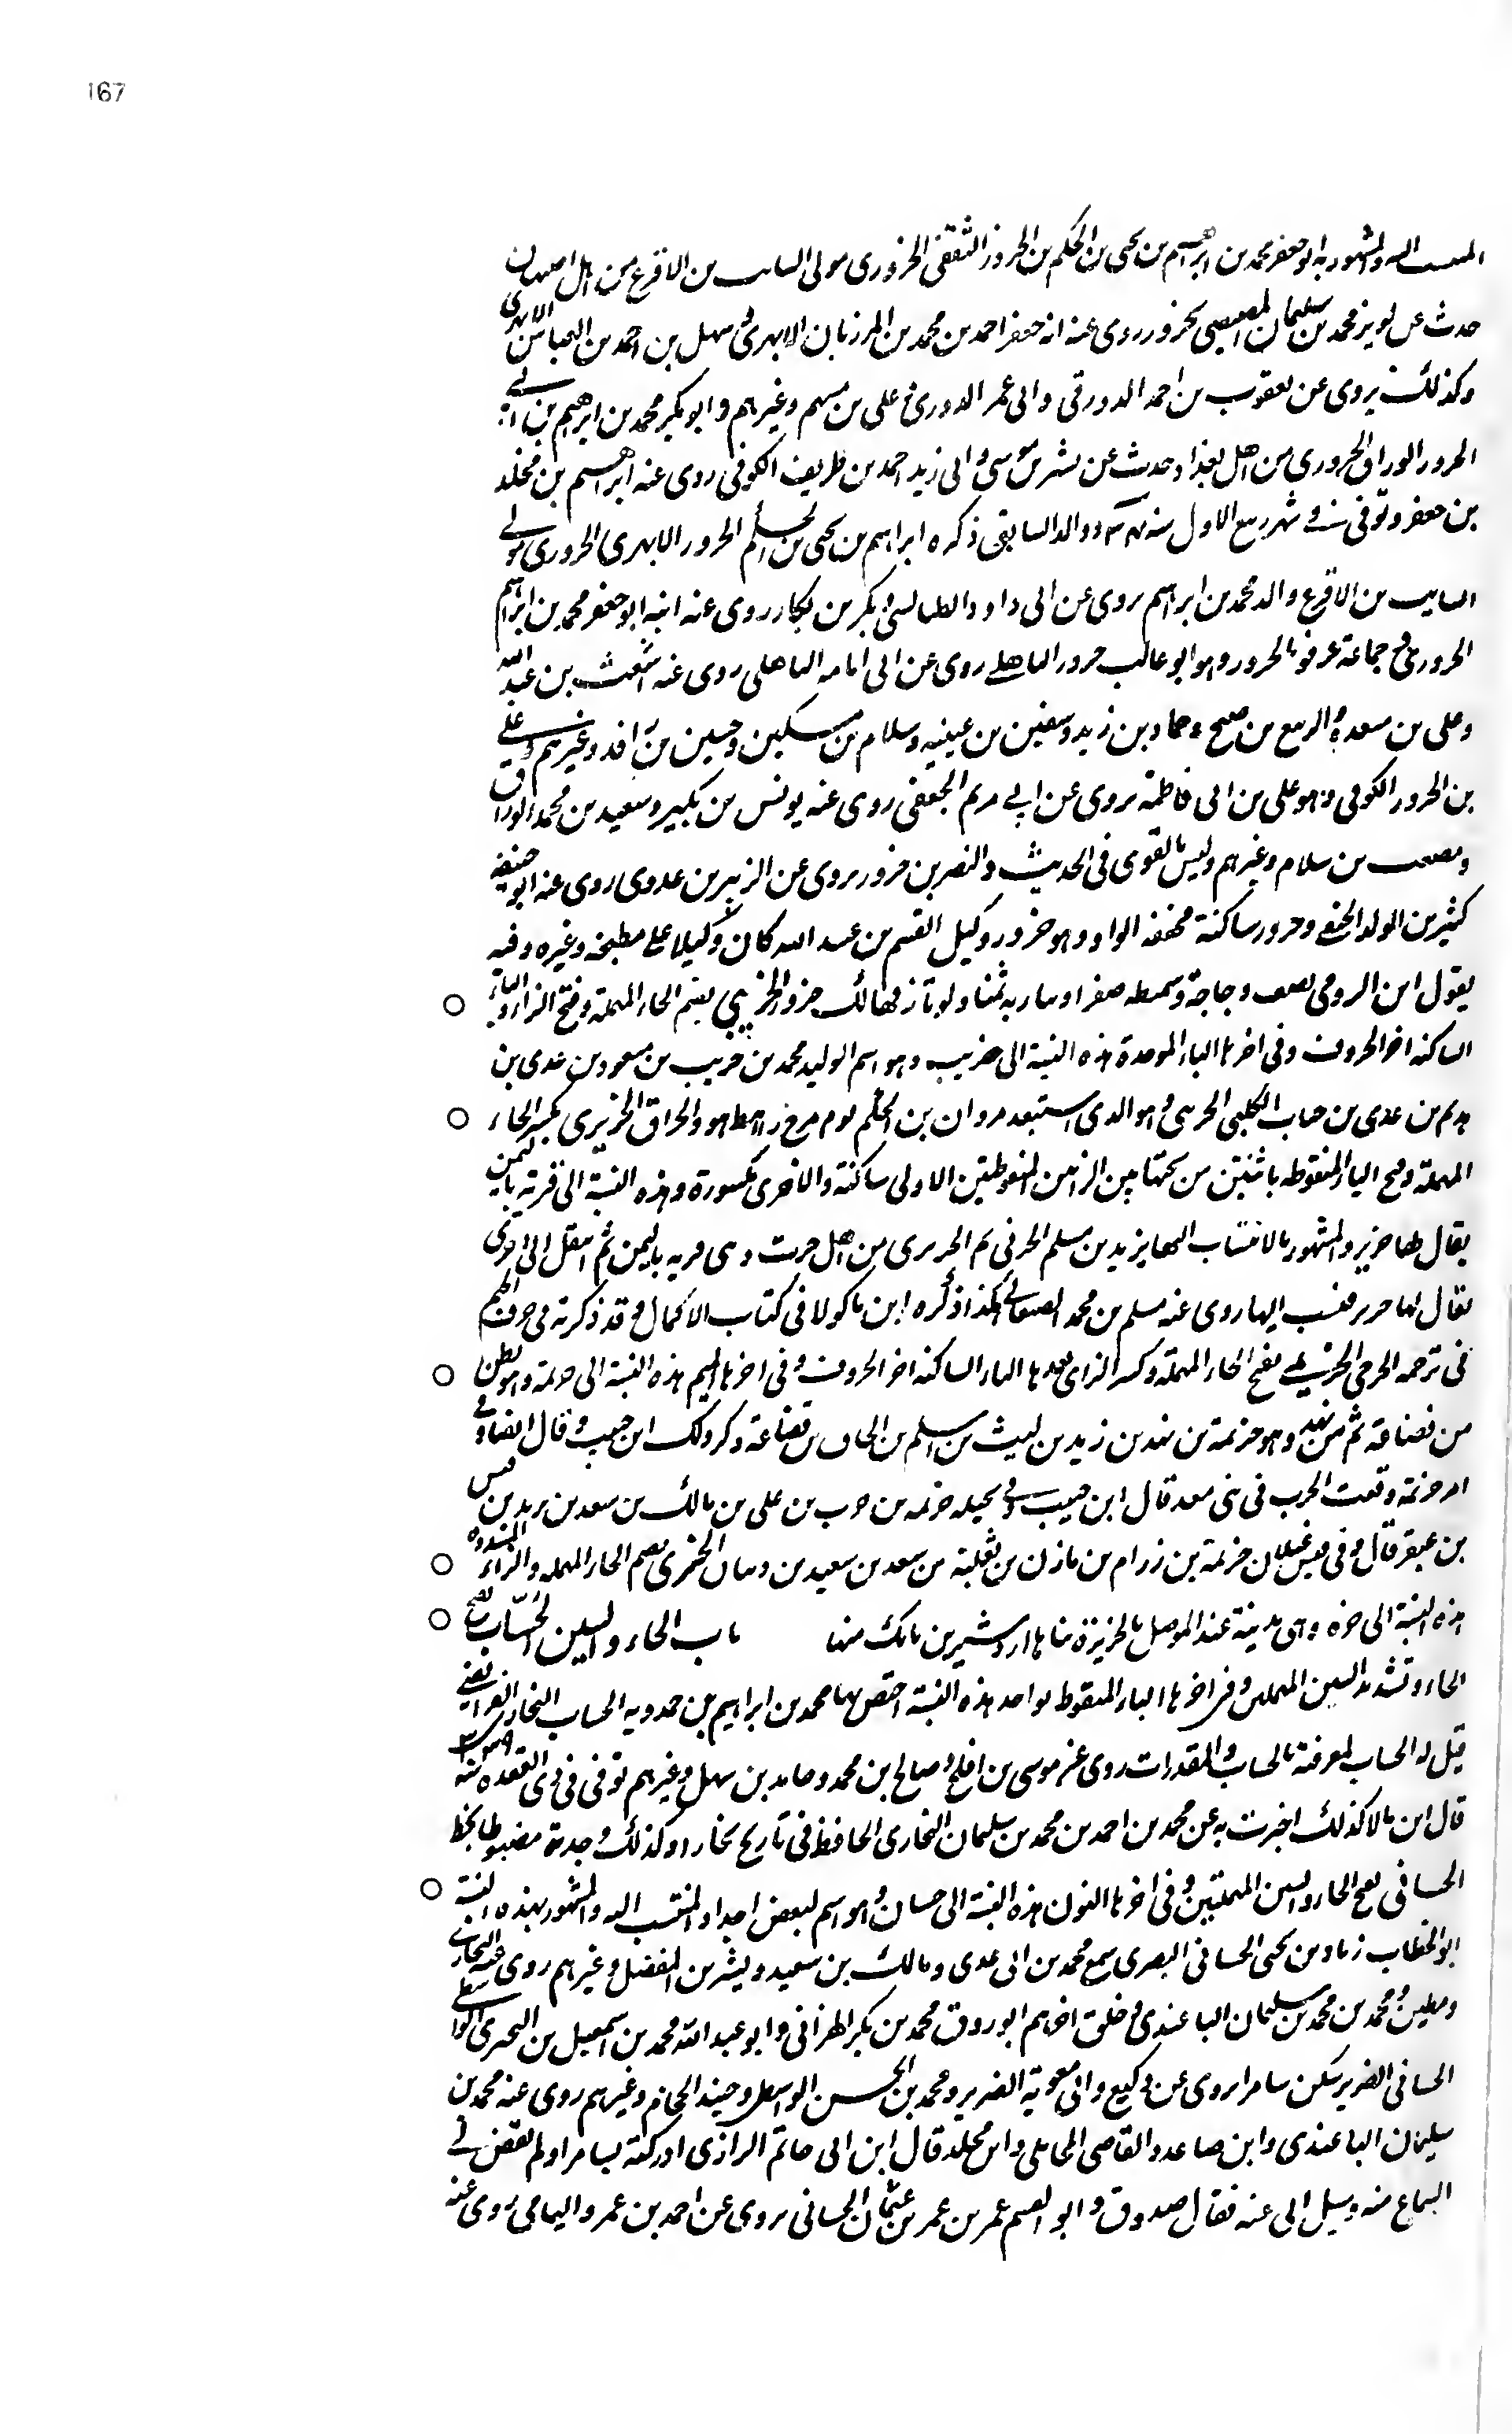 167
المنتسب اليه والمشهور به ابو جعفر محمد بن ابرهيم بن يحيى بن الحكم بن الحزور الثقفى الحزورى مولى السايب بن الاقرع من اهل اصبهان
حدث عن لوين محمد بن سليمان المصيصى بحزور روى عنه ابو جعفر احمد بن محمد بن المرزبان الابهرى و سهل بن احمد بن العباس الابهرى
وكذلك يروى عن يعقوب بن احمد الدورقى وابى عمر الدورى و على بن مسهم وغيرهم وابو بكر محمد بن ابرهيم بن ابى
الحرور الوراق الحزورى من اهل بغداد حدث عن بشر بن موسى و ابى زيد احمد بن طريف الكوفى روى عنه ابرهيم بن مخلد
بن جعفر وتوفى فى شهر ربيع الاول سنه ووالد السابق ذكره ابراهيم بن يحيى بن الحكم الحزور الابهرى الحزورى مولى
السايب بن الاقرع والد محمد بن ابراهيم يروى عن ابى داود الطيالسى و بكر بن بكار روى عنه ابنه ابو جعفر محمد بن ابراهيم
الحزورى و جماعة عرفوا بالحزور وهو ابو غالب حزور الباهلى روى عن ابى امامه الباهلى روى عنه اشعث بن عبد الله
وعلى بن مسعدة والربيع بن صبيح وحماد بن زيد وسفين بن عيينه وسلام بن مسكين وحسين بن واقد وغيرهم وعلى
بن الحزور الكوفى وهو على بن ابى فاطمة يروى عن ابى مريم الجعفى روى عنه يونس بن بكير وسعيد بن محمد الوراق
ومصعب بن سلام وغيرهم وليس بالقوى فى الحديث والنضر بن حزور يروى عن الزبير بن عدوى روى عنه ابو حنيفه
كثير بن الوليد الحنفى وحزور ساكنة مخففه الواو وهو حزور وكيل القسم بن عبيد الله كان وكيلا على مطبخه وغيره وفيه
يقول ابن الرومى يصف دجاجة وسميطه صفرا دينارية ثمنا ولونا زفها لك حزور الحزيبى بضم الحاء المهملة وفتح الزاء والياء
الساكنه اخر الحروف وفى اخرها الباء الموحدة هذه النسبة الى حزيب وهو اسم الوليد محمد بن حزيب بن مسعود بن عدى بن
هذيم بن عدى بن جناب الكلبى الحزيبى و هو الذى استنقذ مروان بن الحكم يوم مرج راهط هو والحراق الحزيزى بكسر الحاء
المهملة وفتح الياء المنقوطه باثنتين من تحتها بين الزايين المنقوطتين الاولى ساكنة والاخرى مكسورة وهذه النسبة الى قرية باليمن
يقال لها حزيز والمشهور بالانتساب اليها يزيد بن مسلم الجرتى ثم الحزيزى من اهل جرت وهى قريه باليمن ثم انتقل الى اخرى
يقال لها حزيز فنسب اليها روى عنه مسلم بن محمد الصنعانى هكذا ذكره ابن ماكولا فى كتاب الاكمال و قد ذكرته فى حرف الجيم
فى ترجمه الجرتى الحزيمى بفتح الحاء المهملة وكسر الزاى بعدها الياء الساكنه اخر الحروف و فى اخرها الميم هذه النسبة الى حزيمة وهو بطن
من قضاعة ثم من نهد وهو حزيمة بن نهد بن زيد بن ليث بن اسلم بن الحاف بن قضاعة ذكر ذلك ابن حبيب و قال ايضا و فى
امر حزيمة وقعت الحرب فى بنى معد قال ابن حبيب و فى بجيله حزيمه بن حرب بن على بن مالك بن سعد بن نذير بن قسر
بن عبقر قال و فى قيس عيلان حزيمة بن رزام بن مازن بن ثعلبة بن سعد بن سعيد بن ذبيان الحزى بضم الحاء المهمله والزاء المشدده
هذه النسبة الى حزه وهى مدينة عند الموصل بالجزيرة بناها اردشير بن بابك منها باب الحاء والسين الحسّاب بفتح
الحاء وتشديد السين المهملين و فى اخرها الباء المنقوطه بواحدة هذه النسبة اختص بها محمد بن ابراهيم بن حمدويه الحساب البخارى الفرائضى
قيل له الحساب لمعرفته بالحساب والمقدرات روى عن موسى بن افلح و صالح بن محمد وحامد بن سهل وغيرهم توفى فى ذى القعده سنه ٣٣٩
قال ابن ماكولا كذلك اخبرت به عن محمد بن احمد بن محمد بن سليمان البخارى الحافظ فى تاريخ بخارا وكذلك وجدته مضبوطا بخط
الحسانى بفتح الحاء والسين المهملتين و فى اخرها النون هذه النسبة الى حسان و هو اسم لبعض اجداد المنتسب اليه والمشهور بهذه النسبة
ابو الخطاب زياد بن يحيى الحسانى البصرى سمع محمد بن ابى عدى ومالك بن سعيد وبشر بن المفضل وغيرهم روى عنه البخارى
ومطين و محمد بن محمد بن سليمان الباغندى و خلق اخرهم ابو روق محمد بن بكر الهزانى وابو عبد الله محمد بن اسمعيل بن البحترى الواسطى
الحسانى الضرير سكن سامرا روى عن وكيع وابى معوية الضرير ومحمد بن الحسن الواسطى وجنيد الحجام وغيرهم روى عنه محمد بن
سليمان الباغندى وابن صاعد والقاضى المحاملى وابن مخلد قال ابن ابى حاتم الرازى ادركته بسامرا ولم يقض لى
السماع منه وسيل ابى عنه فقال صدوق و ابو القسم عمر بن عمر بن عثمان الحسانى يروى عن احمد بن عمرو اليمامى روى عنه